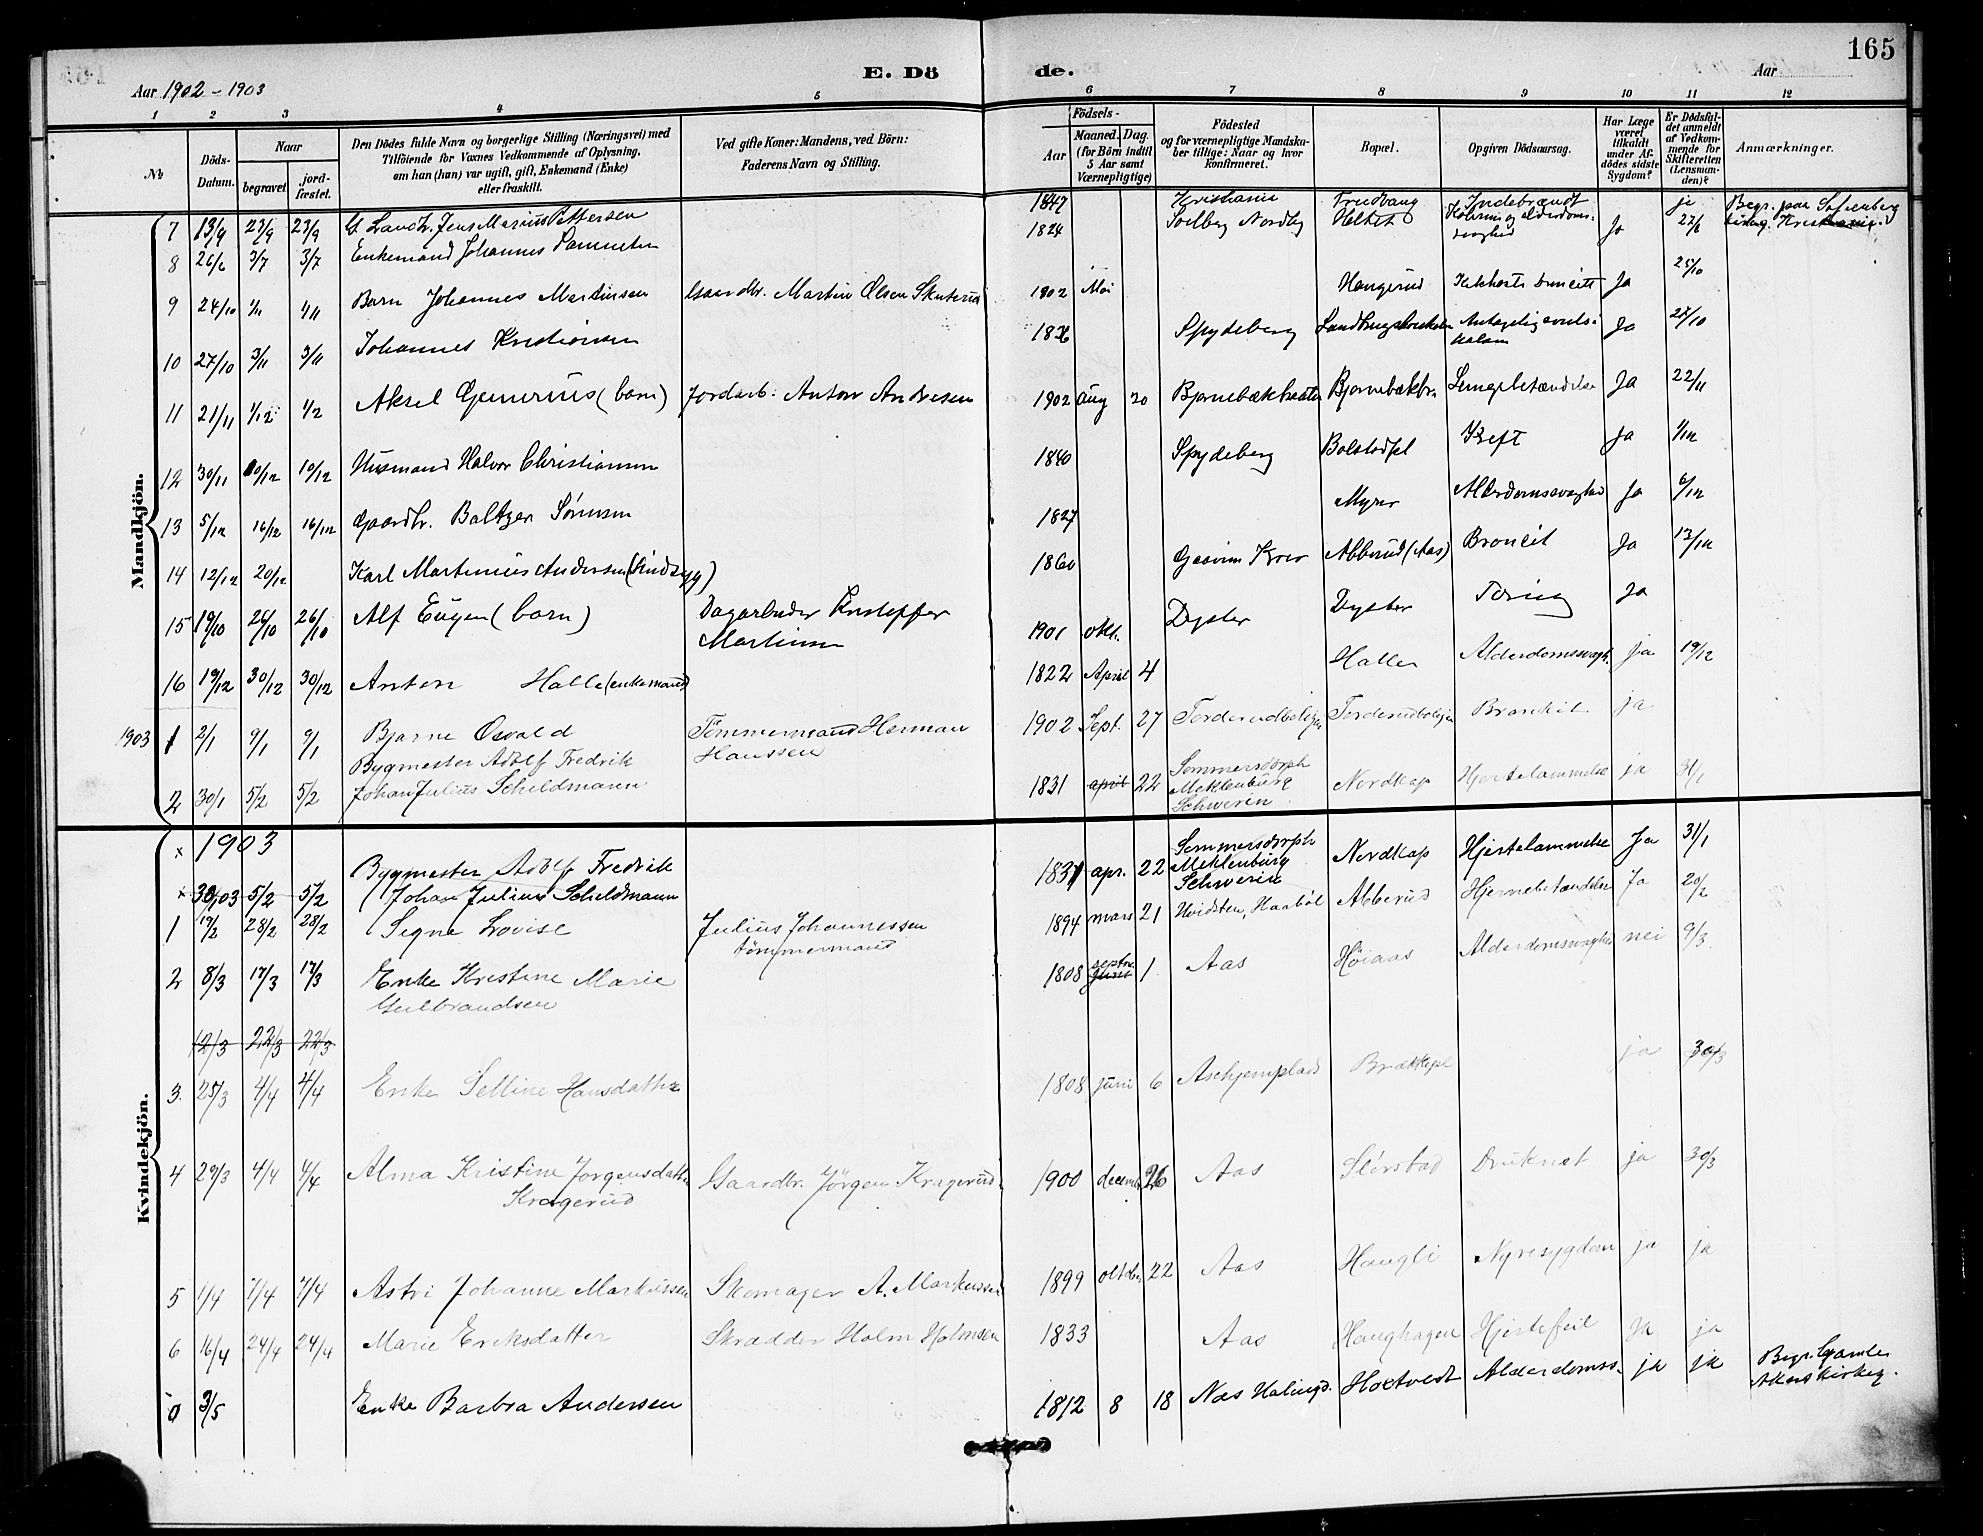 165
Aar 1902 - 1903
E. Dö de.
Aar
1 2 3 4 5 6 7 8 9 10 11 12
No
Döds-Datum.
Naar
begravet
jord-fæstet.
Den Dödes fulde Navn og borgerlige Stilling (Næringsvei) med
Tilföiende for Voxnes Vedkommende af Oplysning,
om han (hun) var ugift, gift, Enkemand (Enke)
eller fraskilt.
Ved gifte Koner: Mandens, ved Börn:
Faderens Navn og Stilling.
Födsels-
Aar
Maaned. Dag.
(for Börn indtil
5 Aar samt
Værnepligtige)
Födested
og for værnepligtige Mandska-
ber tillige: Naar og hvor
konfirmeret.
Bopæl.
Opgiven Dödsaarsag.
Har Læge
været
tilkaldt
under Af-
dödes sidste
Sygdom?
Er Dödsfal-
det anmeldt
af Vedkom-
mende for
Skifteretten
(Lensman-
den)?
Anmærkninger.
Mandkjön.
7 13/9 23/9 23/9 Jens Marius Pettersen 1847 Kristiania ja Begr. paa
8 26/6 3/7 3/7 Enkemand Johannes 1824 Solberg Nordby Ja 27/6
9 24/10 1/11 1/11 Barn Johannes Martinsen Gaardbr. Martin Olsen Skuterud 1902 Mai Haugerud Ja 25/10
10 27/10 3/11 3/11 Johannes Kristiansen 1826 Spydeberg Ja 27/10
11 21/11 1/12 1/2 Aksel (barn) Jordarb: Anton Andresen 1902 aug 20 Lungebetændelse Ja 22/11
12 30/11 10/12 10/12 Husmand Halvor Christiansen 1840 Spydeberg Kræft Ja 1/12
13 5/12 16/12 16/12 Gaardbr. Baltzer Sörensen 1827 Myrer Alderdomssvaghed Ja 6/12
14 12/12 20/12 Karl Martinius Andersen (Sindsyg) 1860 Kroer Abberud (Aas) Bronkit Ja 13/12
15 19/10 26/10 26/10 Alf Eugen (barn) Dagarbeider Kristoffer
Martinsen 1901 okt. Dyster Dyster Tæring Ja
16 19/12 30/12 30/12 Anton Halle (enkemand) 1822 April 4 Haller Alderdomssvagh. ja 19/12
1903 1 2/1 9/1 9/1 Bjarne Osvald Tömmermand Herman
Hanssen 1902 Sept. 27 Torderudboligen Torderudboligen Bronkit ja
2 30/1 5/2 5/2 Bygmester Adolf Fredrik
Johan Julius Schildmann 1831 april 22 Sommersdorph
Meklenburg
Schwerin Nordkap Hjertelammelse ja 31/1
Kvindekjön.
x 1903
x 30/1 03 5/2 5/2 Bygmester Adolf Fredrik
Johan Julius Scheldmann 1831 apr. 22 Sommersdorph
Meklenburg
Schwerin Nordkap Hjertelammelse Ja 31/1
1 19/2 28/2 28/2 Signe Lovise Julius Johannessen
tömmermand 1894 mars 21 Hvidsten, Haaböl Abberud Hjernebetændelse Ja 20/2
2 8/3 17/3 17/3 Enke Kristine Marie
Gulbrandsen 1808 septre 1 Aas Höiaas Alderdomssvaghed nei 9/3
12/3 22/3 22/3
3. 25/3 4/4 4/4 Enke Selline Hansdatter 1808 juni 6 Askjemplads Brækkepl ja 30/3
4 29/3 4/4 4/4 Alma Kristine Jorgensdatter
Kragerud Gaardbr. Jörgen Kragerud 1900 decembr 26 Aas Störstad Druknet ja 30/3
5 1/4 7/4 7/4 Astri Johanne Markussen Skomager A. Markussen 1899 oktober 22 Aas Haugli Nyresygdom ja ja
6 16/4 24/4 24/4 Marie Eriksdatter Skrædder Holm Holmsen 1833 Aas Haughagen Hjertefeil Ja ja
0 3/5 Enke Barbra Andersen 1812 8 18 Næs Halingd. Hoxtvedt Alderdomss. ja ja Begr. Gamle
Akers kirkeg.